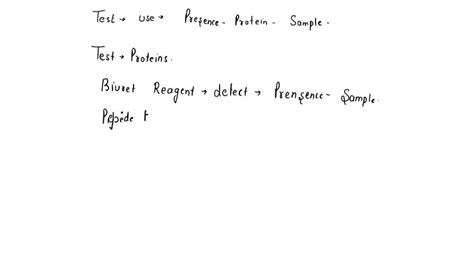 Test → use → Presence - Protein - Sample.
Test → Proteins.
Biuret Reagent → detect → Prensence - Sample.
Pepide t